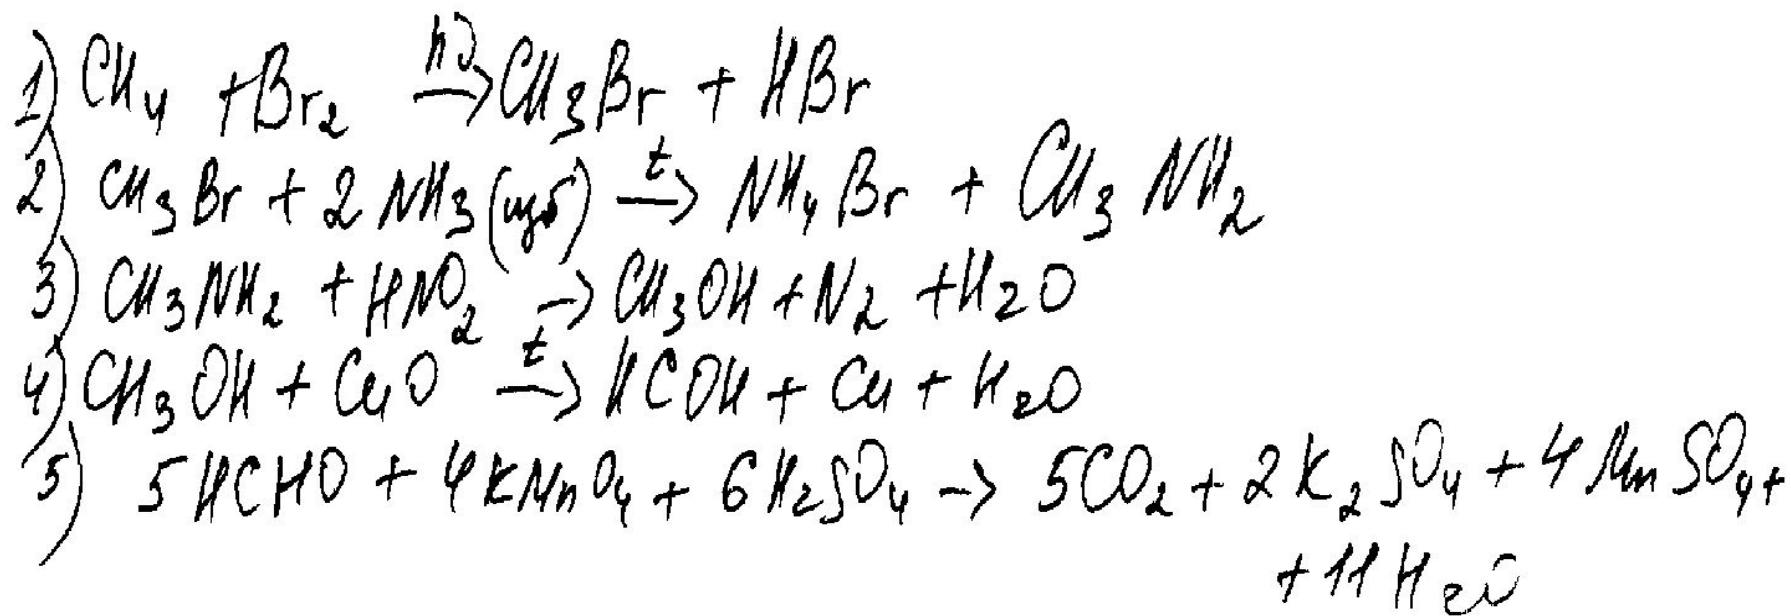 1) CH₄ + Br₂ hν→ CH₃Br + HBr
2) CH₃Br + 2NH₃(изб) t→ NH₄Br + CH₃NH₂
3) CH₃NH₂ + HNO₂ → CH₃OH + N₂ + H₂O
4) CH₃OH + CuO t→ HCOH + Cu + H₂O
5) 5HCHO + 4KMnO₄ + 6H₂SO₄ → 5CO₂ + 2K₂SO₄ + 4MnSO₄ +
+ 11H₂O